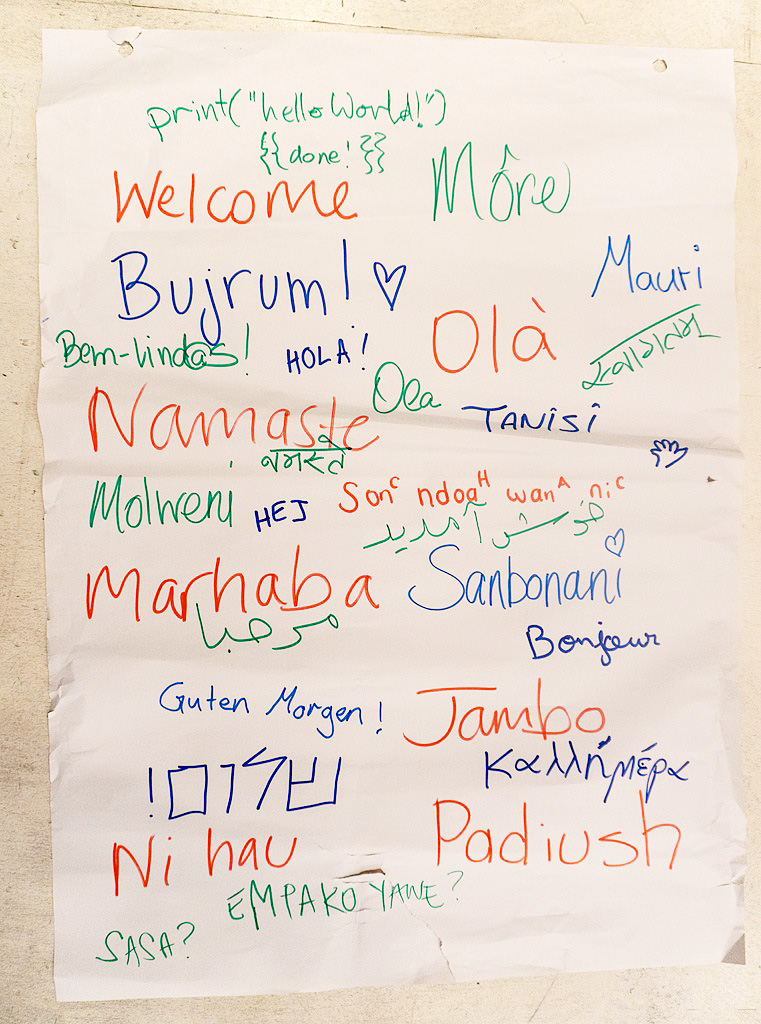 print("hello World!")
{{done! }}
Welcome
Môre
Bujrum! ♡
Mauri
Olà
Bem-lind@s!
HOLA!
स्वागतम
Ola
Namaste
TANiSi
नमस्ते
Molweni
HEJ
Sonᶜ ndoaᴴ wanᴬ niᶜ
خوش آمدید
Marhaba
Sanbonani
مرحبا
Bonjour
Guten Morgen!
Jambo
שלום!
Καλλήμέρα
Ni hau
Padiush
EMPAKO YAWE?
SASA?